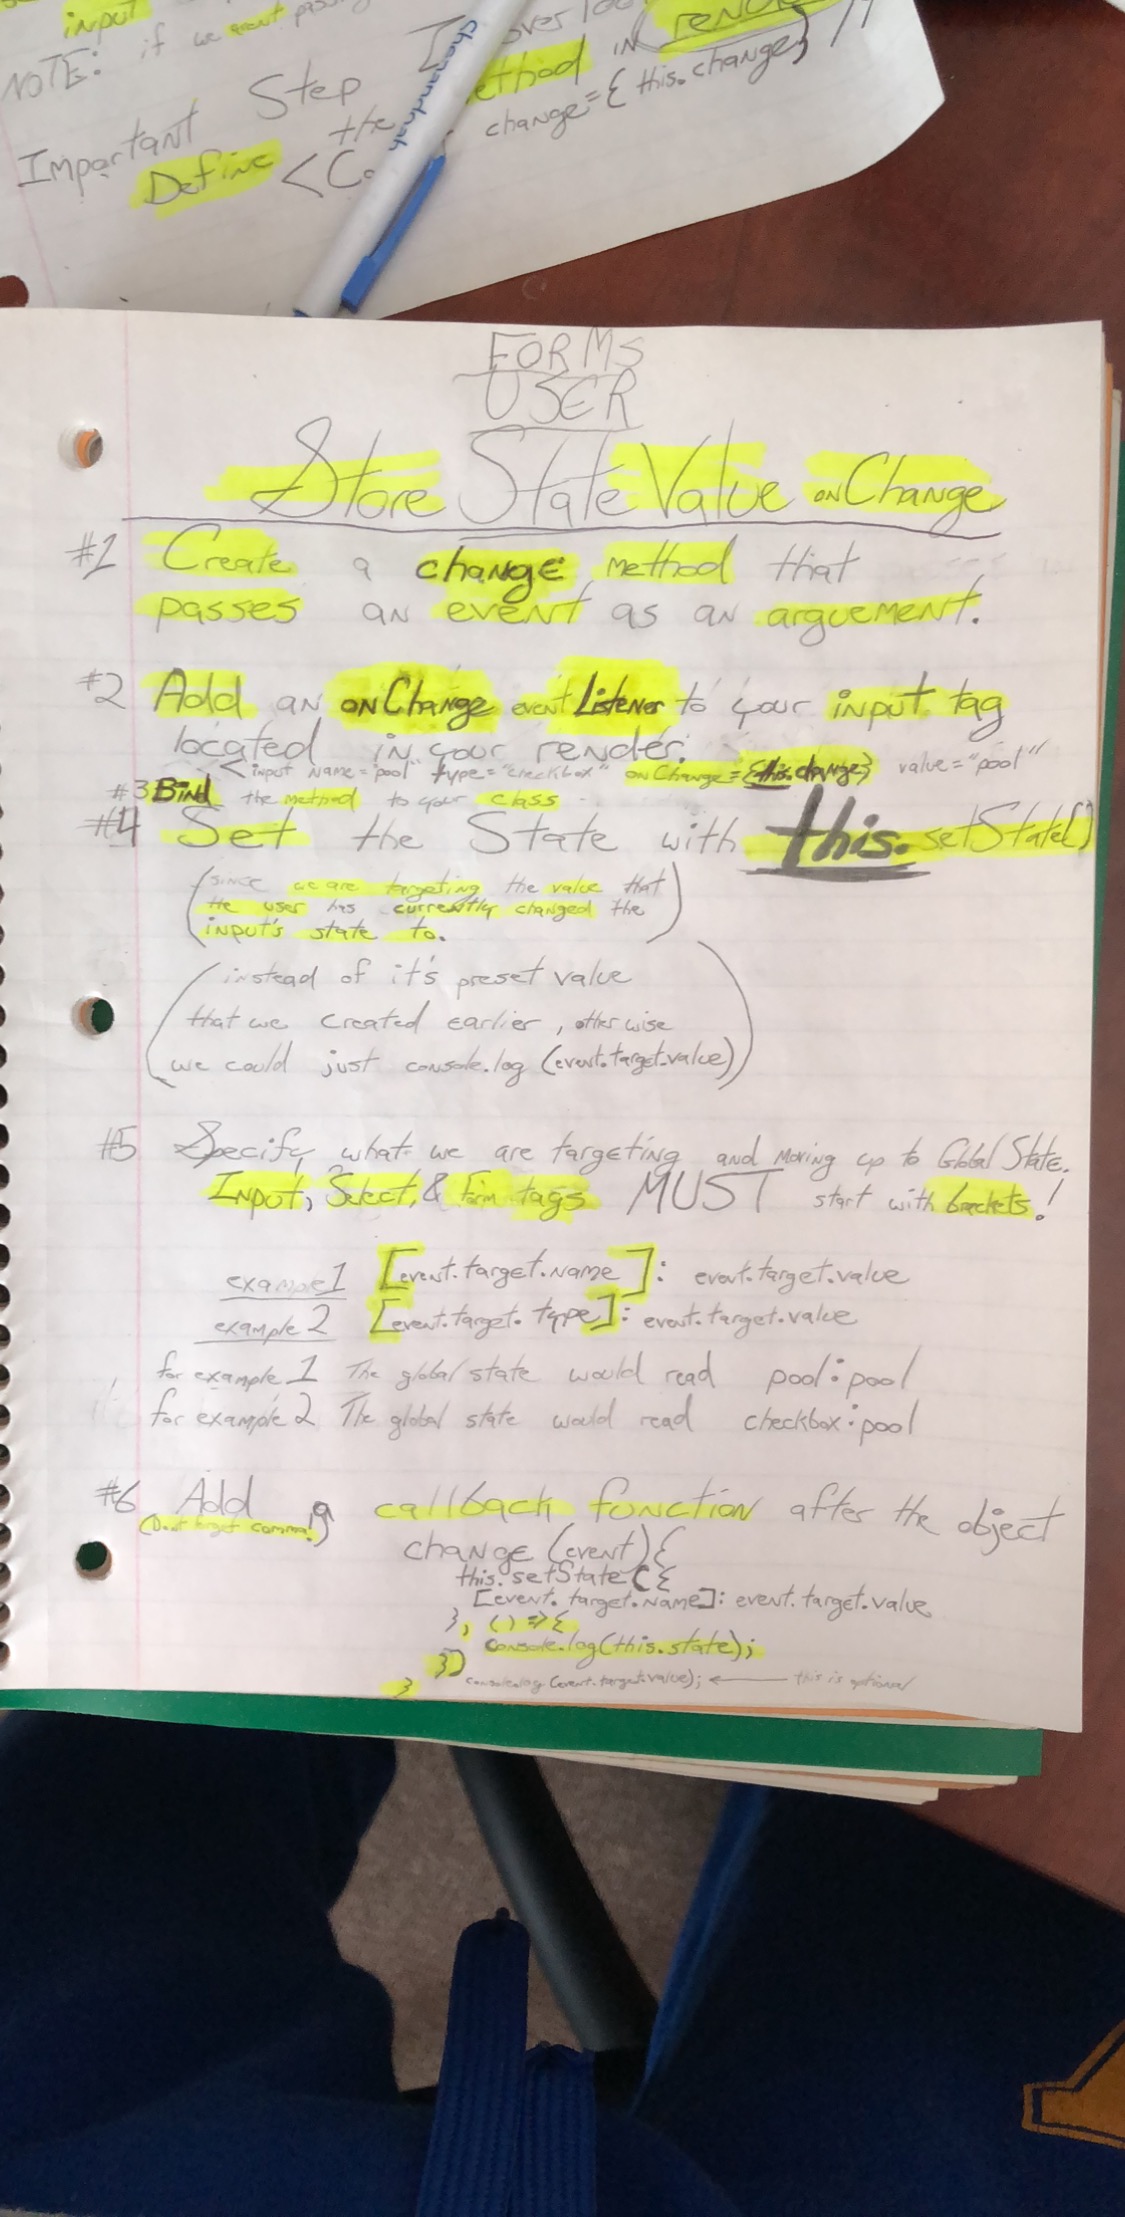 input
NOTE: if we arent passing
over
Important Step
the method in render
Define <Co change={this.change} />
Chenandnah
FORMS
USER
Store State Value onChange
#1 Create a change method that
passes an event as an arguement.
#2 Add an onChange event Listener to your input tag
located in your render.
<input name="pool" type="checkbox" onChange={this.change} value="pool"
#3 Bind the method to your class
#4 Set the State with this.setState()
(since we are targeting the value that
the user has currently changed the
input's state to.)
(instead of it's preset value
that we created earlier, otherwise
we could just console.log (event.target.value))
#5 Specify what we are targeting and moving up to Global State.
Input, Select, & Form tags MUST start with brackets!
example 1 [event.target.name]: event.target.value
example 2 [event.target.type]: event.target.value
for example 1 The global state would read pool:pool
for example 2 The global state would read checkbox:pool
#6 Add a callback function after the object
(Dont forget comma!)
change (event){
this.setState({
[event.target.name]: event.target.value
}, () => {
console.log(this.state);
})
console.log(event.target.value); ← this is optional
}